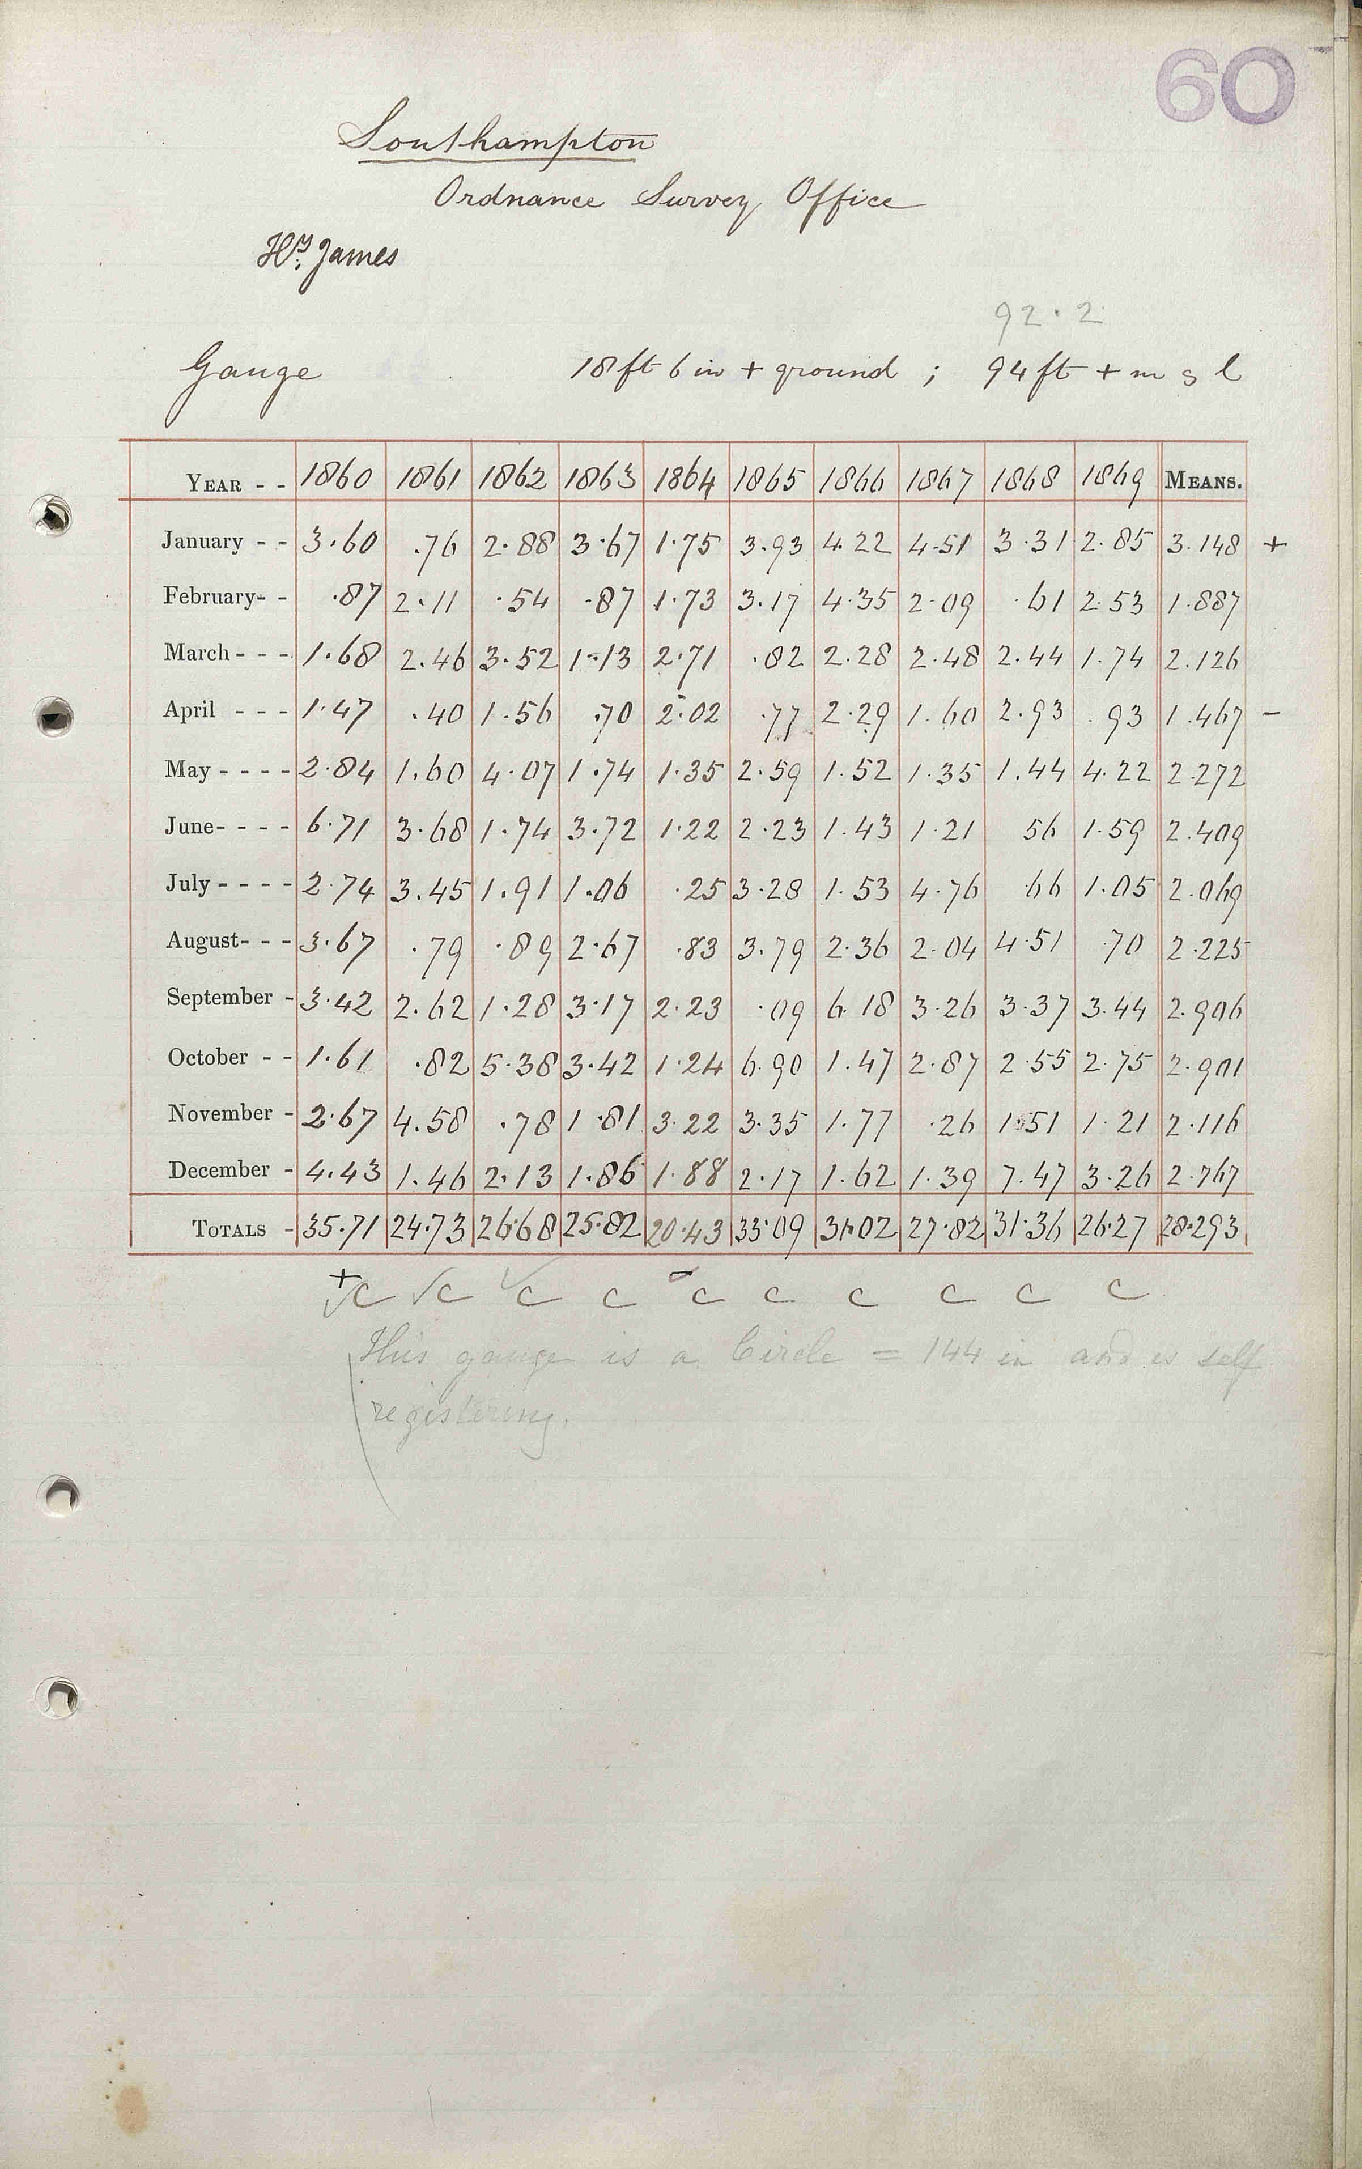 60
Southampton
Ordnance Survey Office
Hy. James
92.2
Gauge 18 ft 6 in + ground ; 94 ft + m s l
YEAR - - 1860 1861 1862 1863 1864 1865 1866 1867 1868 1869 MEANS.
January - - 3.60 .76 2.88 3.67 1.75 3.93 4.22 4.51 3.31 2.85 3.148 +
February- - .87 2.11 .54 .87 1.73 3.17 4.35 2.09 .61 2.53 1.887
March - - - 1.68 2.46 3.52 1.13 2.71 .82 2.28 2.48 2.44 1.74 2.126
April - - - 1.47 .40 1.56 .70 2.02 .77 2.29 1.60 2.93 .93 1.467 -
May - - - - 2.84 1.60 4.07 1.74 1.35 2.59 1.52 1.35 1.44 4.22 2.272
June- - - - 6.71 3.68 1.74 3.72 1.22 2.23 1.43 1.21 56 1.59 2.409
July - - - - 2.74 3.45 1.91 1.06 .25 3.28 1.53 4.76 .66 1.05 2.069
August- - - 3.67 .79 .89 2.67 .83 3.79 2.36 2.04 4.51 .70 2.225
September - 3.42 2.62 1.28 3.17 2.23 .09 6.18 3.26 3.37 3.44 2.906
October - - 1.61 .82 5.38 3.42 1.24 6.90 1.47 2.87 2.55 2.75 2.901
November - 2.67 4.58 .78 1.81 3.22 3.35 1.77 .26 1.51 1.21 2.116
December - 4.43 1.46 2.13 1.86 1.88 2.17 1.62 1.39 7.47 3.26 2.767
TOTALS - 35.71 24.73 26.68 25.82 20.43 33.09 31.02 27.82 31.36 26.27 28.293
+ -
✓c ✓c ✓c c c c c c c c
This gauge is a Circle = 144 in and is self
registering.